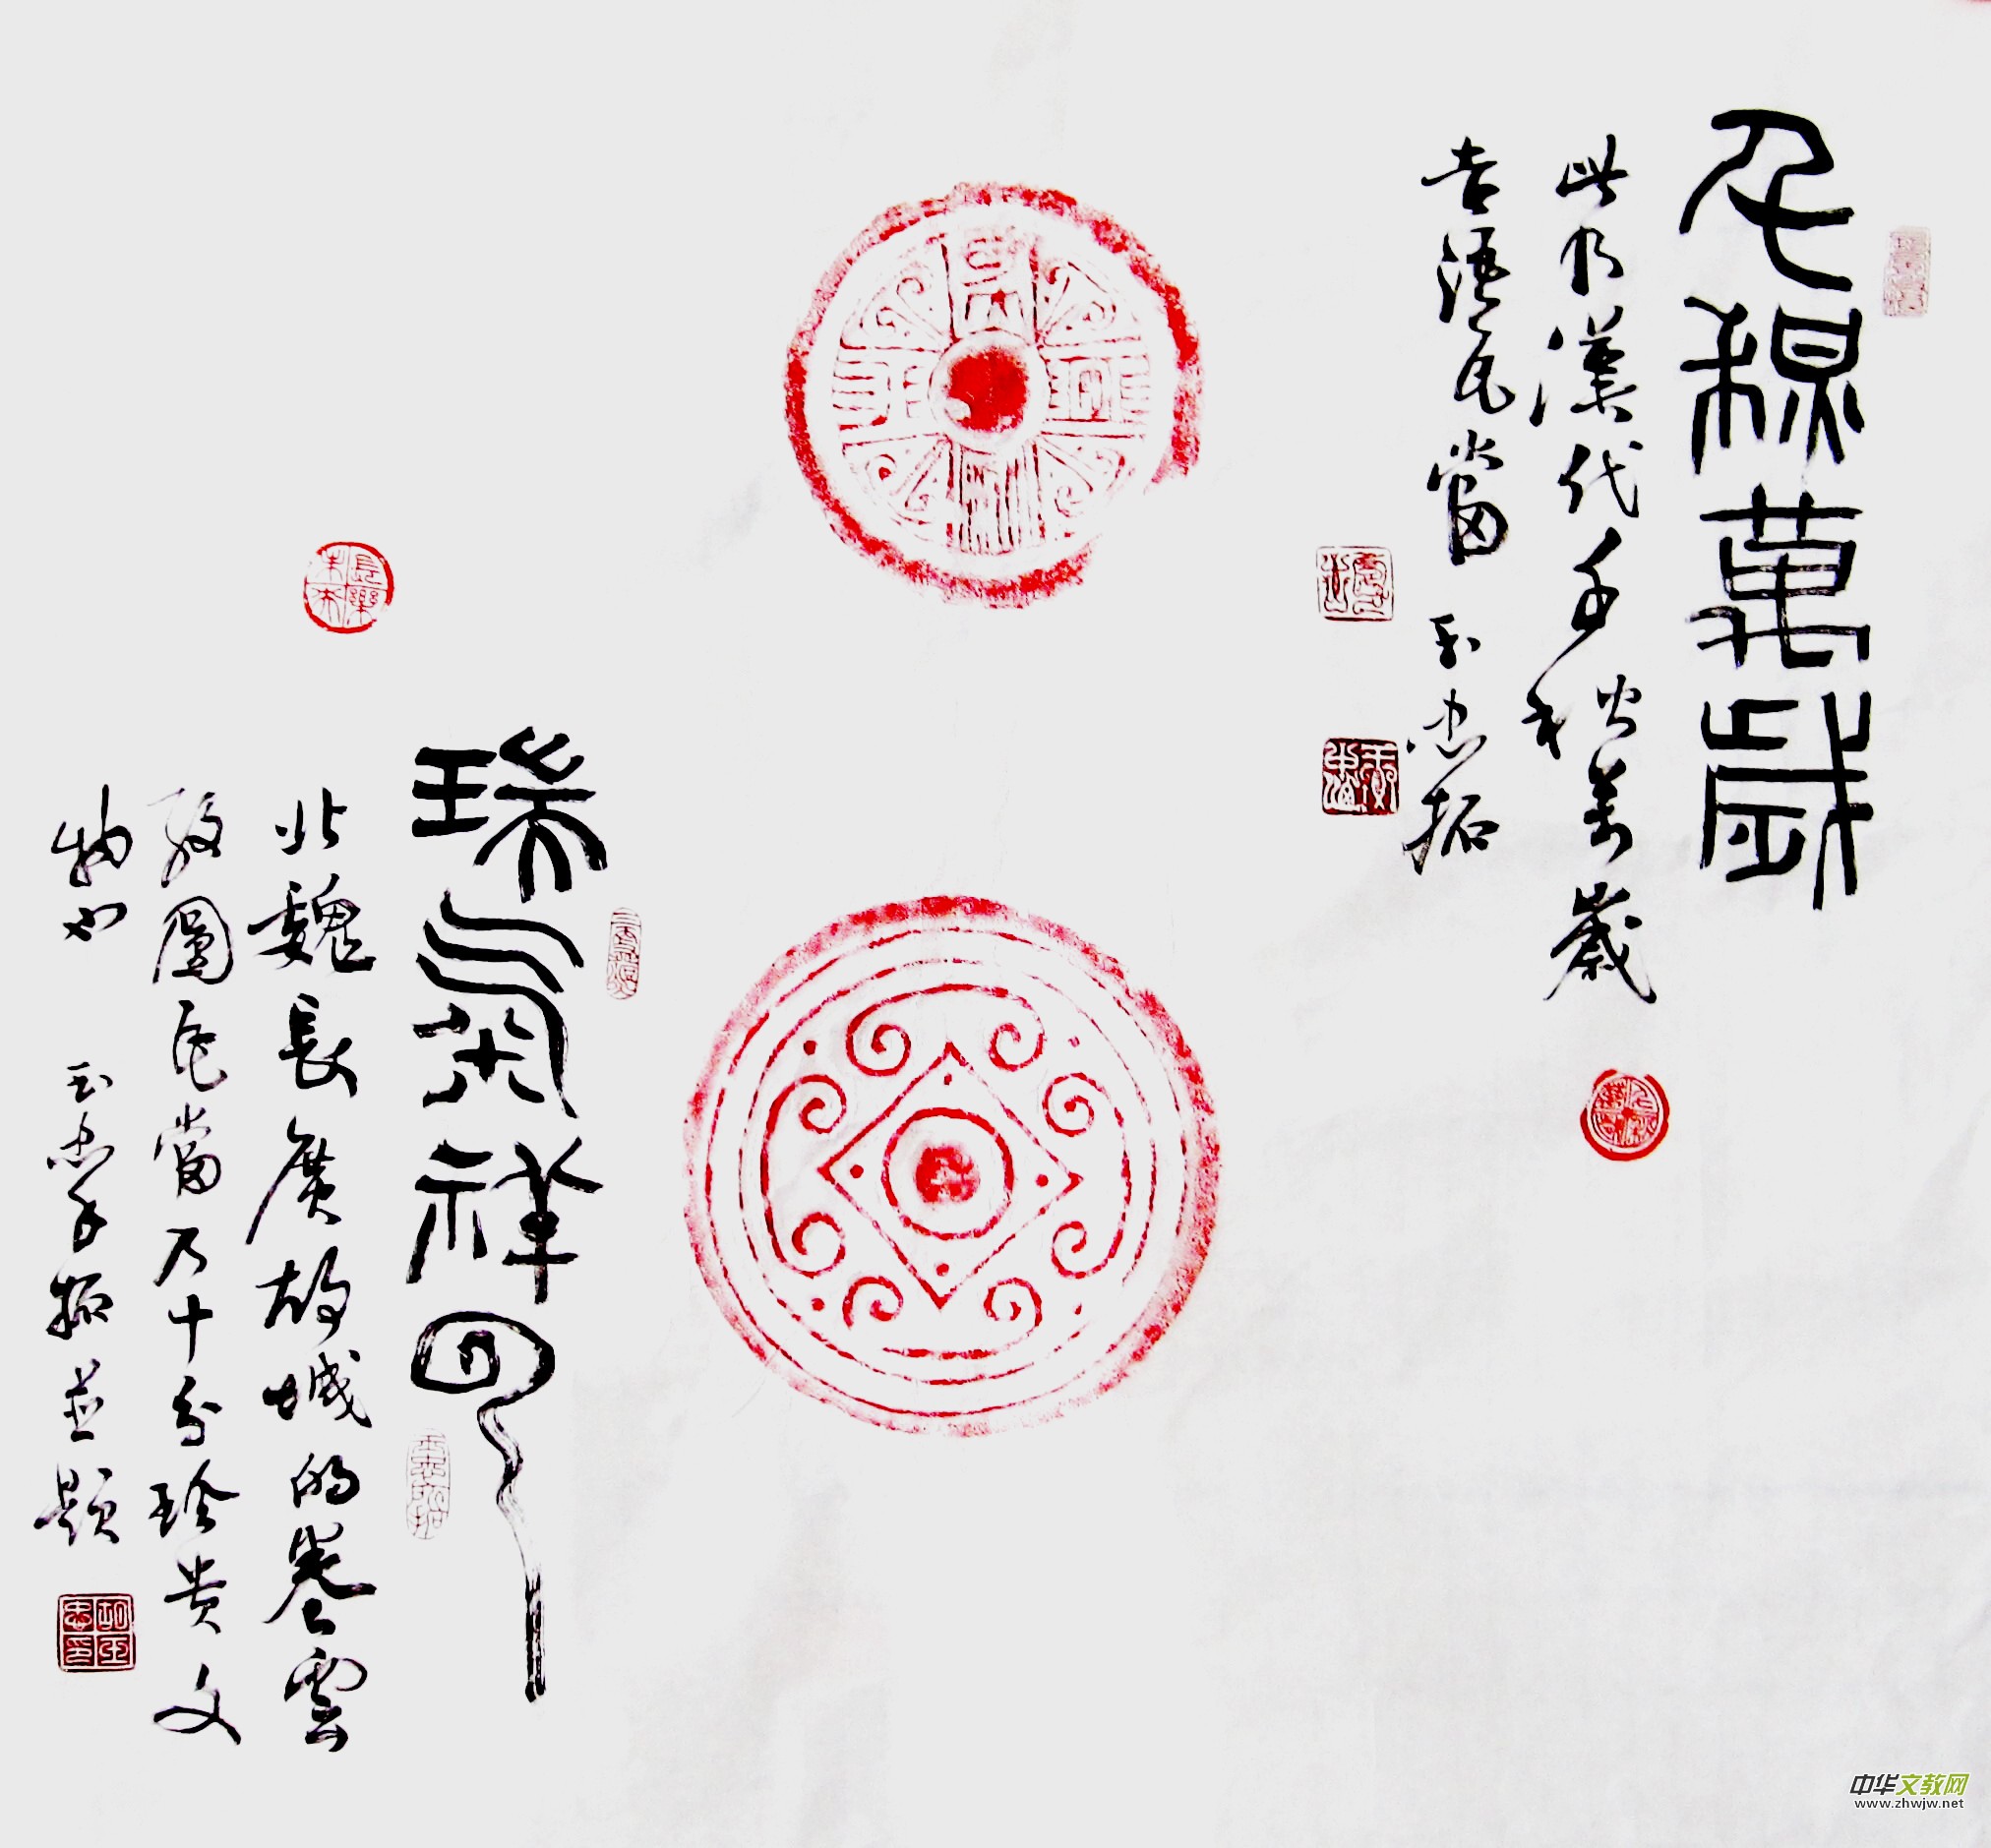 千秋萬歲
此乃漢代千秋萬歲
吉語瓦當 玉忠拓
瑞氣祥雲
北魏長廣故城的卷雲
紋圖瓦當乃十分珍貴文
物也 玉忠手拓並題
長樂未央
中华文教网
www.zhwjw.net